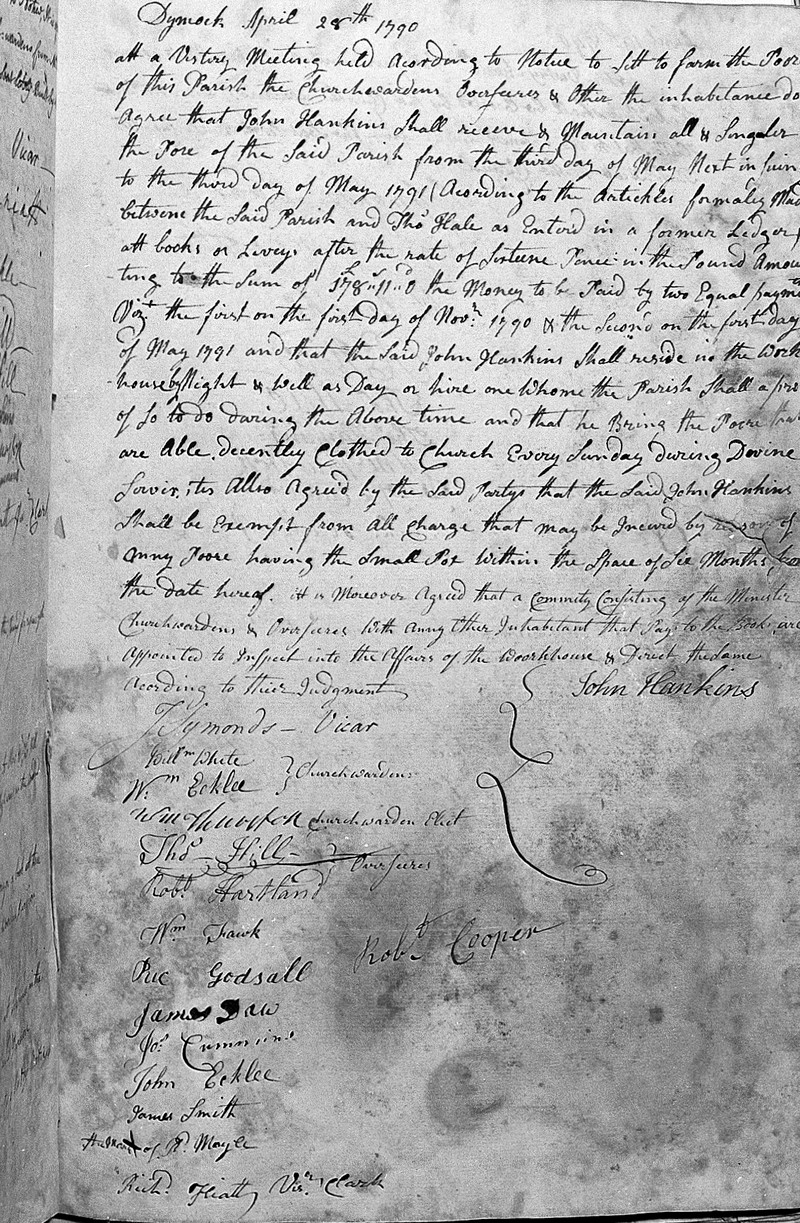 Dymock April 28th 1790
att a Vestrey Meeting held Acording to Notice to Sett to farm the Poor
of this Parish the Churchwardens Overseeres & Other the inhabitance do
Agree that John Hankins Shall receive & Maintain all & Singuler
the Pore of the Said Parish from the third day of May Next in
to the third day of May 1791 (Acording to the Artickles formaley
betwene the Said Parish and Thos Hale as Enterd in a former Ledger)
att books or Leveys after the rate of Sixteene Pence in the Pound Amou
ting to the Sum of £178"11"0 the Money to be Paid by two Equal payme
Vizt the first on the first day of Novr 1790 & the Second on the first day
of May 1791 and that the Said John Hankins Shall reside in the Work
house by Night & Well as Day or hire one Whome the Parish Shall a pro
of So to do during the Above time and that he Bring the Poore
are Able decently Clothed to Church Every Sunday during Devine
Servis, its Allso Agree'd by the Said Partys that the Said John Hankins
Shall be Exempt from all Charge that may be Incured by reason of
anny Poore having the Small Pox Within the Space of Six Months
the date hereof. it is Moreover Agreed that a Commity Consisting of the Minister
Churchwardens & Overseeres With anny other Inhabitant that Pays to the Book, are
Appointed to Inspect into the Affairs of the Woorkhouse & Direct the Same
Acording to their Judgment
John Hankins
Symonds - Vicar
Willm White
Wm Ecklee } Churchwardens
Wm Churchwarden Elect
Thos Hill
Overseeres
Robt Hartland
Wm Fawk
Robt Cooper
Ric Godsall
James Daw
Jos Cummins
John Ecklee
James Smith
the Mark X of Rd Mayle
Richd Hiatt Clark